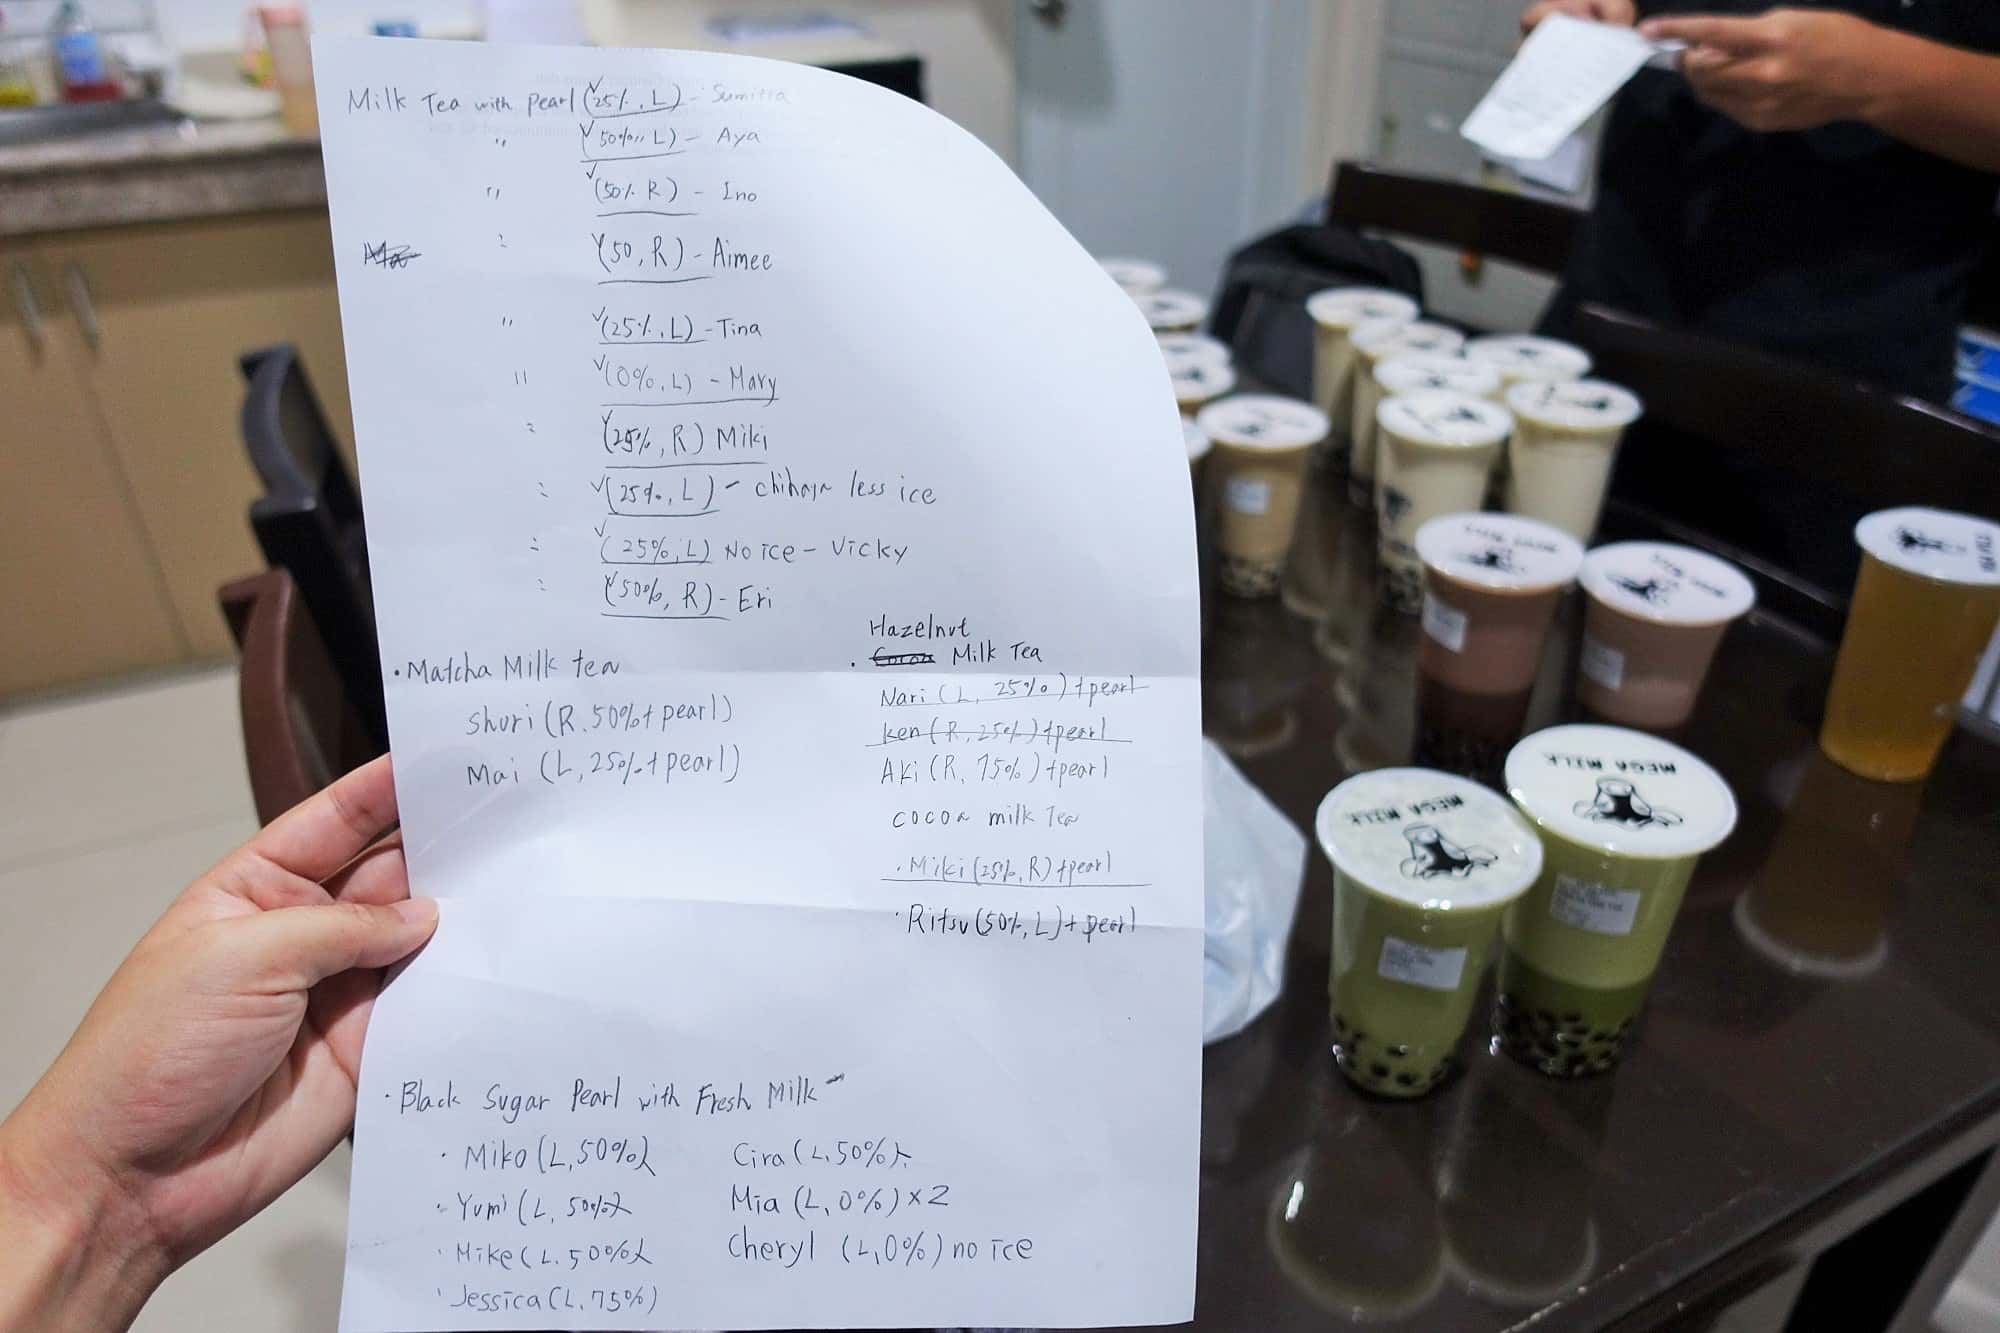 Milk Tea with pearl (25%, L) - Sumitta
" (50%, L) - Aya
" (50% R) - Ino
" (50, R) - Aimee
" (25%, L) - Tina
" (0%, L) - Mary
" (25%, R) Miki
" (25%, L) - chihaya less ice
" (25%, L) No ice - Vicky
" (50%, R) - Eri
· Matcha Milk tea
Shuri (R. 50% + pearl)
Mai (L, 25% + pearl)
Hazelnut
· Cocoa Milk Tea
Nari (L, 25%) + pearl
ken (R, 25%) + pearl
Aki (R, 75%) + pearl
cocoa milk Tea
· Miki (25%, R) + pearl
· Ritsu (50%, L) + pearl
· Black Sugar Pearl with Fresh Milk
· Miko (L, 50%)
· Yumi (L, 50%)
· Mike (L. 50%)
· Jessica (L, 75%)
Cira (L, 50%)
Mia (L, 0%) x 2
Cheryl (L, 0%) no ice
MEGA MILK
MEGA MILK